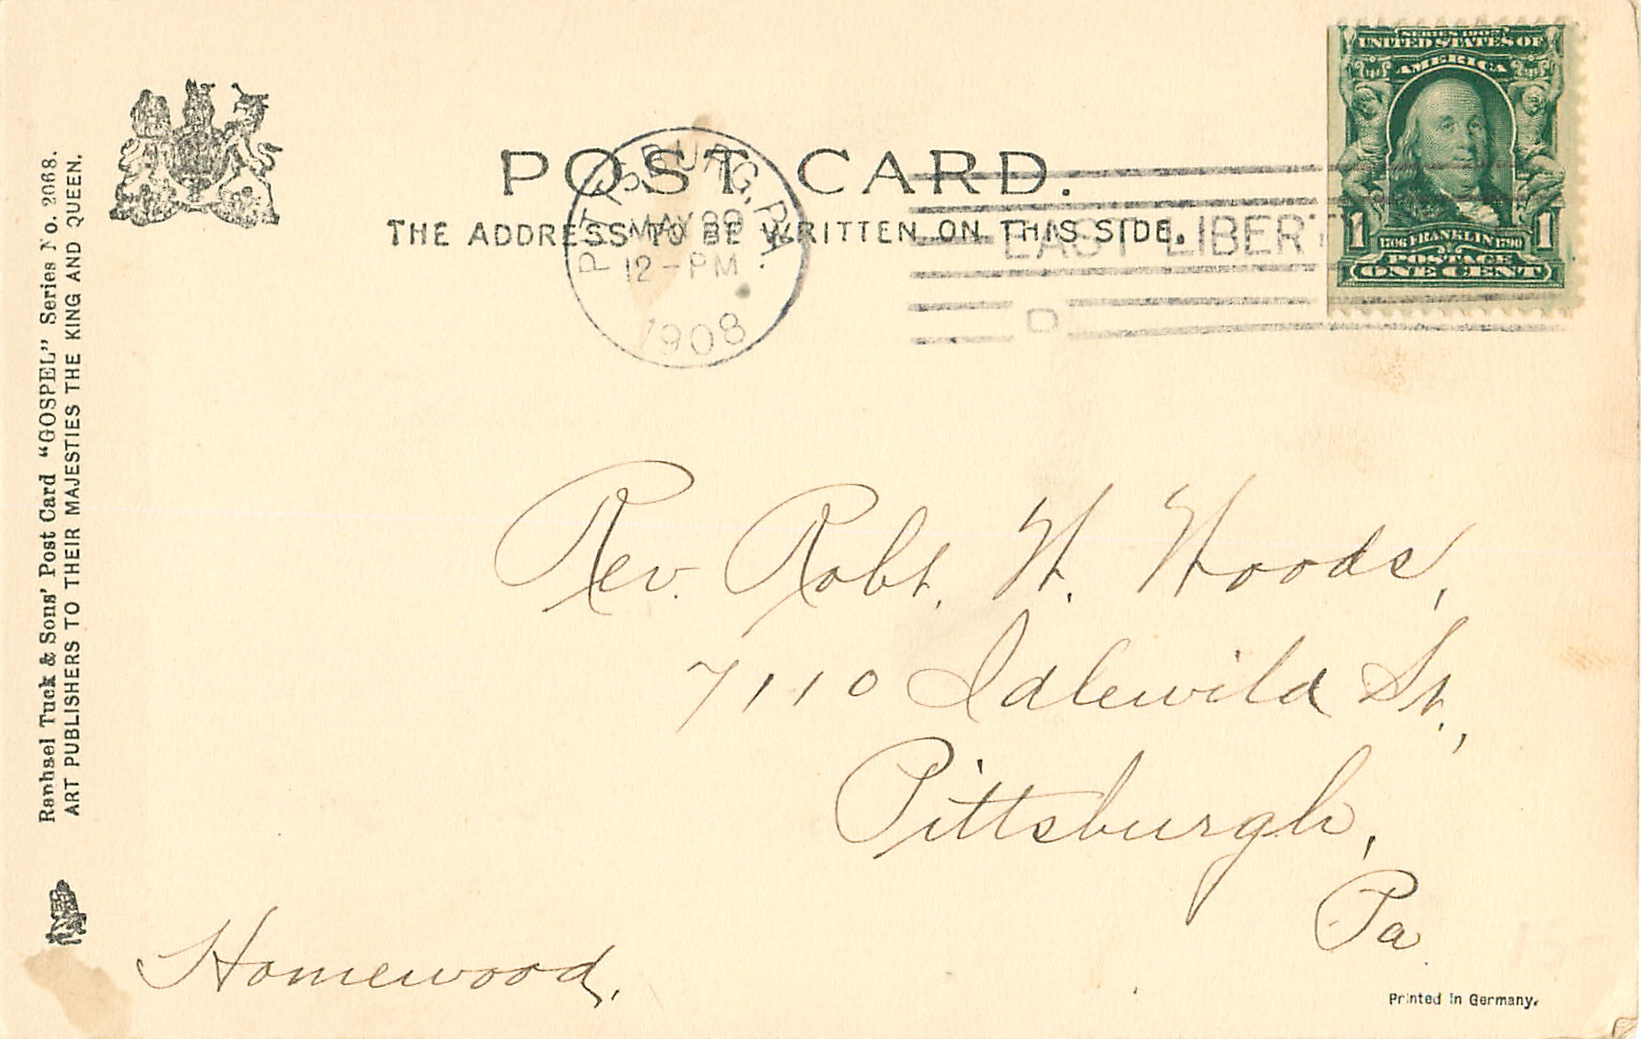 Raphael Tuck & Sons' Post Card "GOSPEL" Series No. 2068.
ART PUBLISHERS TO THEIR MAJESTIES THE KING AND QUEEN.
POST CARD.
THE ADDRESS TO BE WRITTEN ON THIS SIDE.
PITTSBURG, PA.
MAY
12-PM
1908
EAST LIBERT
D
SERIES 1902
UNITED STATES OF
AMERICA
1 1706 FRANKLIN 1790 1
POSTAGE
ONE CENT
Rev. Robt. W. Woods,
7110 Idlewild St.,
Pittsburgh,
Pa
Homewood.
Printed in Germany.